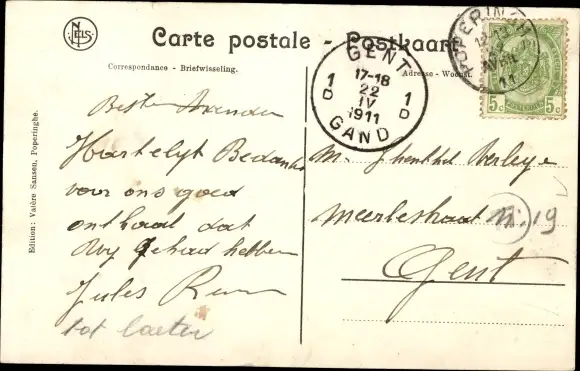 NELS
Carte postale - Postkaart
Correspondance - Briefwisseling.
Adresse - Woonst.
GENT
1 D
17-18
22
IV
1911
1 D
GAND
POPERIN
AVRIL
11
5c 5c
Edition: Valère Sansen, Poperinghe.
Beste Vrienden
Hartelijk Bedankt
voor ons goed
onthaal dat
Wij gehad hebben
Jules
tot later
M.
Meerlestraat N. 19
Gent